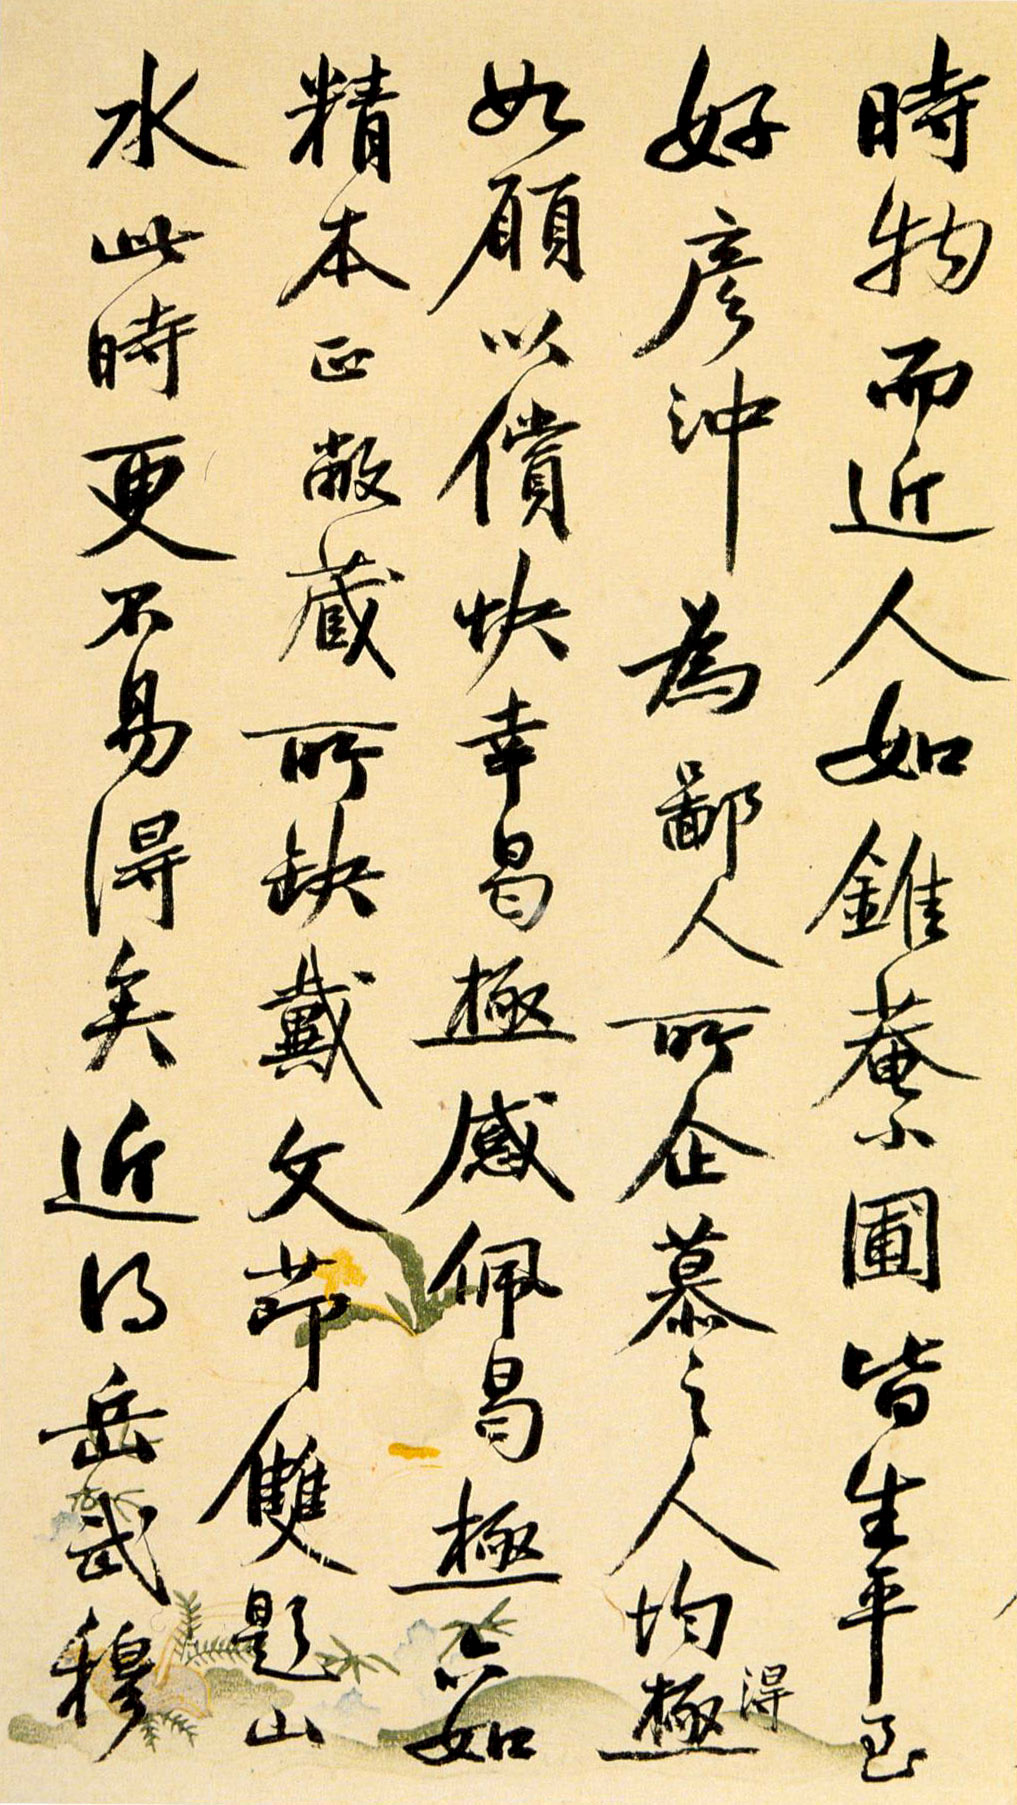 時物而近人如錐菴小圃皆生平至
好彦沖為鄙人所企慕之人均極得
如願以償快幸曷極感佩曷極六如
精本正敝藏所缺戴文節雙題山
水此時更不易得矣近得岳武穆